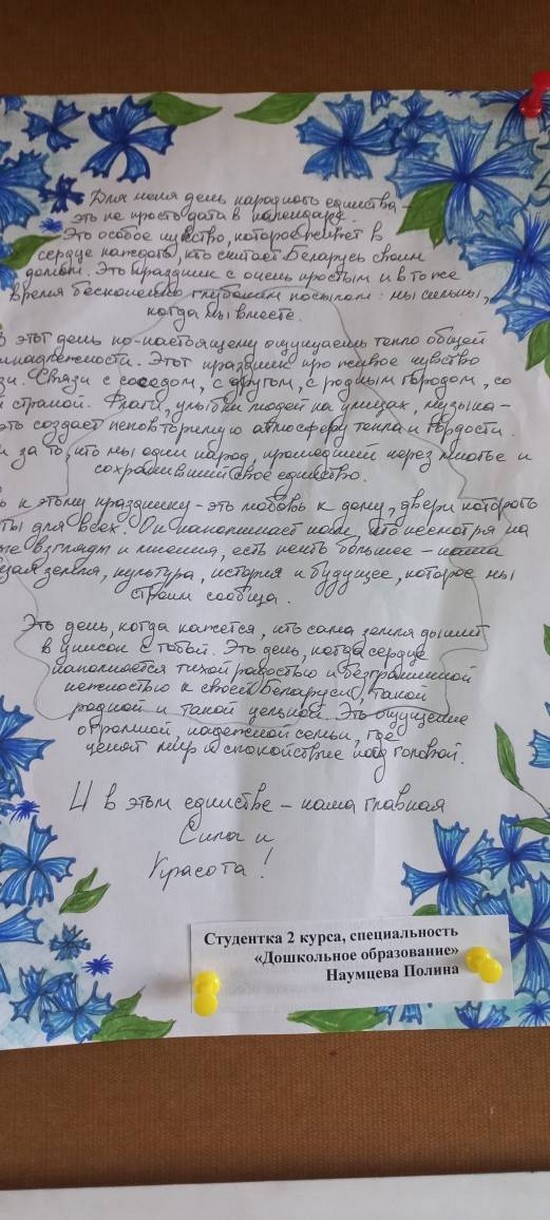 Для меня день народного единства –
это не просто дата в календаре.
Это особое чувство, которое живёт в
сердце каждого, кто считает Беларусь своим
домом. Это праздник с очень простым и в то же
время бесконечно глубоким посылом: мы сильны,
когда мы вместе.
В этот день по-настоящему ощущаешь тепло общей
принадлежности. Этот праздник про живое чувство
зи. Связи с соседом, с другом, с родным городом, со
й страной. Флаги, улыбки людей на улицах, музыка –
это создаёт неповторимую атмосферу тепла и гордости.
за то, что мы один народ, прошедший через многое и
сохранивший своё единство.
ь к этому празднику – это любовь к дому, двери которого
ты для всех. Он напоминает нам, что несмотря на
ые взгляды и мнения, есть нечто большее – наша
земля, культура, история и будущее, которое мы
строим сообща.
Это день, когда кажется, что сама земля дышит
в унисон с тобой. Это день, когда сердце
наполняется тихой радостью и безграничной
нежностью к своей Беларуси, такой
родной и такой цельной. Это ощущение
огромной, надежной семьи, где
ценят мир и спокойствие над головой.
И в этом единстве – наша главная
Сила и
Красота!
Студентка 2 курса, специальность
«Дошкольное образование»
Наумцева Полина